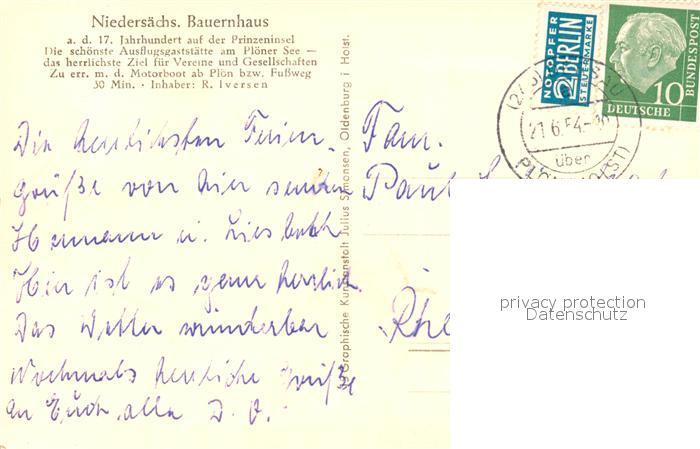 Niedersächs. Bauernhaus
a. d. 17. Jahrhundert auf der Prinzeninsel
Die schönste Ausflugsgaststätte am Plöner See —
das herrlichste Ziel für Vereine und Gesellschaften
Zu err. m. d. Motorboot ab Plön bzw. Fußweg
30 Min. · Inhaber: R. Iversen
NOTOPFER
2 BERLIN
STEUERMARKE
DEUTSCHE
BUNDESPOST
10
21.6.54
über
Graphische Kunstanstalt Julius Simonsen, Oldenburg i Holst.
Die herzlichsten Ferien-
grüße von hier senden
Hermann u. Liesbeth
Hier ist es ganz herrlich.
Das Wetter wunderbar
Nochmals herzliche Grüße
an Euch alle D. O.
Fam.
Paul
Rhe
privacy protection
Datenschutz